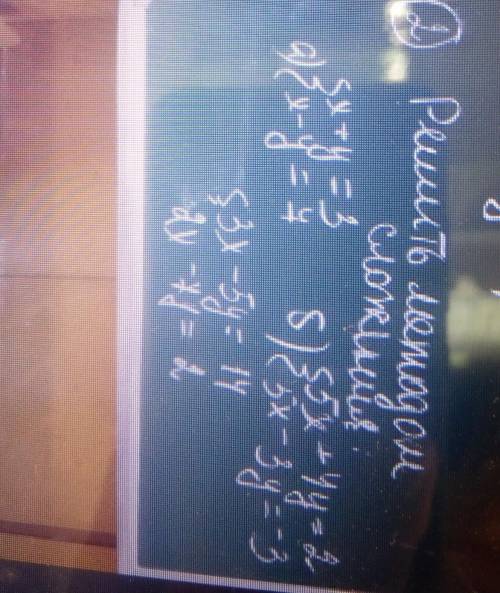 2
Решить методом
сложения:
а) { x + y = 3 б) { 5x + 4y = 2
{ x - y = 4 { 5x - 3y = -3
{ 3x - 5y = 14
2x - 7y = 2